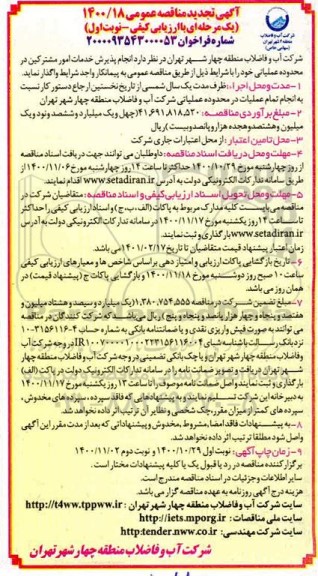 آگهی تجدید مناقصه عمومی ۱۴۰۰/۱۸
(یک مرحله‌ای با ارزیابی کیفی - نوبت اول)
شماره فراخوان ۲۰۰۰۰۹۳۵۴۳۰۰۰۰۵۳
شرکت آب و فاضلاب
منطقه ۴ شهر تهران
(سهامی خاص)
شرکت آب و فاضلاب منطقه چهار شهر تهران در نظر دارد انجام پذیرش خدمات امور مشترکین در
محدوده عملیاتی خود را با شرایط ذیل از طریق مناقصه عمومی به پیمانکار واجد شرایط واگذار نماید.
۱- مدت و محل اجرا: ظرف مدت یک سال شمسی از تاریخ نخستین ارجاع دستور کار نسبت
به انجام تمام عملیات در محدوده عملیاتی شرکت آب و فاضلاب منطقه چهار شهر تهران
۲- مبلغ برآوردی مناقصه: ۴۱،۶۹۱،۸۱۸،۵۲۰ (چهل و یک میلیارد و ششصد و نود و یک
میلیون و هشتصد و هجده هزار و پانصد و بیست) ریال
۳- محل تامین اعتبار: از محل اعتبارات جاری شرکت
۴- مهلت و محل دریافت اسناد مناقصه: داوطلبان می توانند جهت دریافت اسناد مناقصه
از روز چهارشنبه مورخ ۱۴۰۰/۱۰/۲۹ حداکثر تا ساعت ۱۴ روز چهارشنبه مورخ ۱۴۰۰/۱۱/۰۶ از
طریق سامانه تدارکات الکترونیکی دولت به آدرس www.setadiran.ir اقدام نمایند.
۵- مهلت و محل تحویل اسناد ارزیابی کیفی و اسناد مناقصه: متقاضیان شرکت در
مناقصه می بایست کلیه مدارک مربوط به پاکات (الف، ب، ج) و اسناد ارزیابی کیفی را حداکثر
تا ساعت ۱۴ روز یکشنبه مورخ ۱۴۰۰/۱۱/۱۷ در سامانه تدارکات الکترونیکی دولت به آدرس
www.setadiran.ir بارگذاری و ثبت نمایند.
زمان اعتبار پیشنهاد قیمت متقاضیان تا تاریخ ۱۴۰۱/۰۲/۱۷ می باشد.
۶- تاریخ بازگشایی پاکات ارزیابی و امتیازدهی بر اساس شاخص ها و معیارهای ارزیابی کیفی
ساعت ۱۰ صبح روز دوشنبه مورخ ۱۴۰۰/۱۱/۱۸ و بازگشایی پاکات ج (پیشنهاد قیمت) در
همان روز می باشد.
۷- مبلغ تضمین شرکت در مناقصه ۱،۳۸۰،۷۵۴،۵۵۵ (یک میلیارد و سیصد و هشتاد میلیون و
هفتصد و پنجاه و چهار هزار و پانصد و پنجاه و پنج) ریال می باشد که شرکت کنندگان در مناقصه
می توانند به صورت فیش واریزی نقدی و یا ضمانتنامه بانکی به شماره حساب ۴-۳۱۵۶۱۱۶-۱۰
نزد بانک رسالت با شناسه شبای در وجه شرکت آب
و فاضلاب منطقه چهار شهر تهران و یا چک بانکی تضمینی در وجه شرکت آب و فاضلاب منطقه چهار
شهر تهران دریافت و تصویر ضمانت نامه را در سامانه تدارکات الکترونیکی دولت در پاکت (الف)
بارگذاری و ثبت نمایند و اصل ضمانت نامه موصوف را تا ساعت ۱۳ روز یکشنبه مورخ ۱۴۰۰/۱۱/۱۷
به دبیرخانه این شرکت تسلیم نمایند و به پیشنهاد هایی که فاقد سپرده، سپرده های مخدوش،
سپرده های کمتر از میزان مقرر، چک شخصی و نظایر آن ترتیب اثر داده نخواهد شد.
۸- به پیشنهادات فاقد امضا، مشروط، مخدوش و پیشنهاداتی که بعد از مدت مقرر این آگهی
واصل شود مطلقا ترتیب اثر داده نخواهد شد.
۹- زمان چاپ آگهی: نوبت اول ۱۴۰۰/۱۰/۲۹ و نوبت دوم ۱۴۰۰/۱۱/۰۲
برگزار کننده مناقصه در رد یا قبول یک یا کلیه پیشنهادات مختار است.
سایر اطلاعات و جزئیات در اسناد مناقصه مندرج است.
هزینه درج آگهی روزنامه به عهده مناقصه گزار می باشد.
سایت شرکت آب و فاضلاب منطقه چهار شهر تهران: http://t4ww.tppww.ir
سایت ملی مناقصات: http://iets.mporg.ir
سایت شرکت مهندسی: http:tender.nww.co.ir
شرکت آب و فاضلاب منطقه چهار شهر تهران